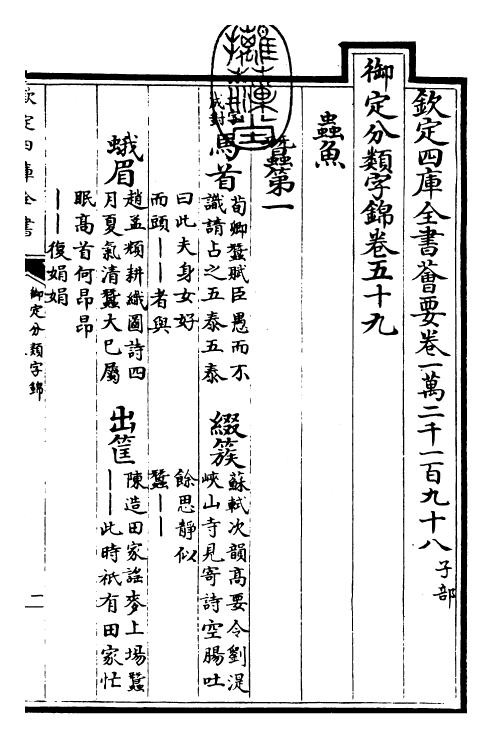 欽定四庫全書薈要卷一萬二千一百九十八 子部
御定分類字錦卷五十九
蟲魚
蠶第一
成對
馬首
荀卿蠶賦臣愚而不
識請占之五泰五泰
曰此夫身女好
而頭——者與
綴簇
蘇軾次韻高要令劉湜
峽山寺見寄詩空腸吐
餘思靜似
蠶——
蛾眉
趙孟頫耕織圖詩四
月夏氣清蠶大已屬
眠高首何昂昂
——復娟娟
出筐
陳造田家謠麥上場蠶
——此時祇有田家忙
欽定四庫全書
御定分類字錦
二